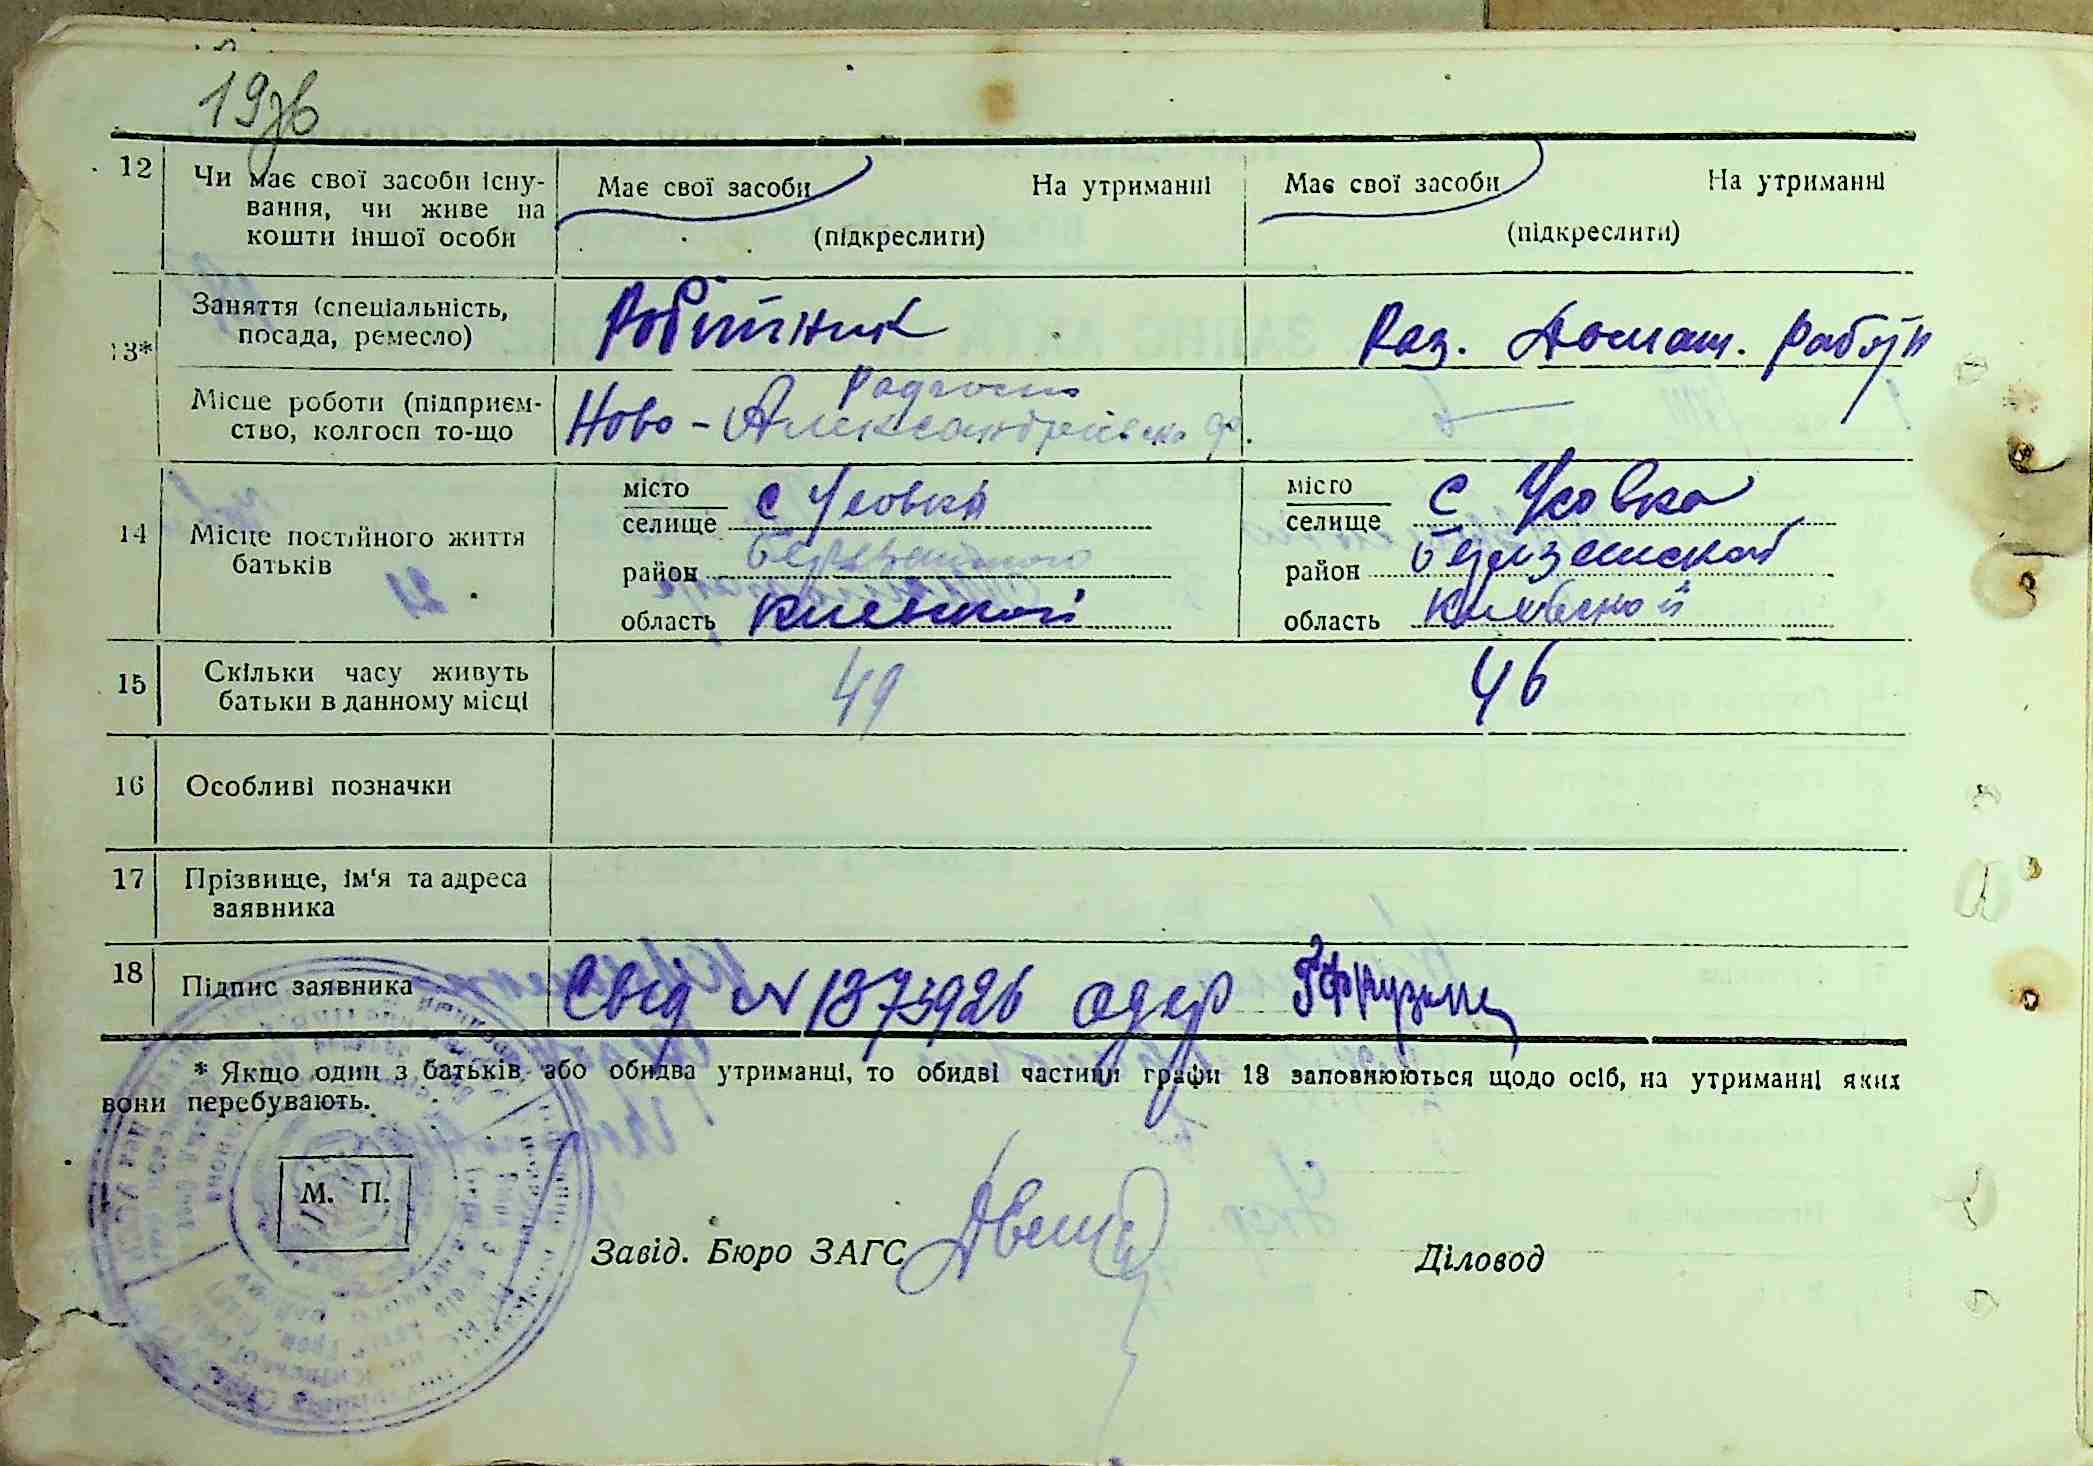 19зв
12 Чи має свої засоби існу-
вання, чи живе на
кошти іншої особи
Має свої засоби На утриманні
(підкреслити)
Має свої засоби На утриманні
(підкреслити)
13* Заняття (спеціальність,
посада, ремесло)
Робітник
Раз. Домаш. работи
Місце роботи (підприєм-
ство, колгосп то-що
Радгосп
Ново-Александрейвско
14 Місце постійного життя
батьків
місто
селище с Усовки
район
область Киевской
місто
селище с Усовка
район Березанской
область Киевской
15 Скільки часу живуть
батьки в данному місці
49
46
16 Особливі позначки
17 Прізвище, ім'я та адреса
заявника
18 Підпис заявника
Свід N 1373926 одер
* Якщо один з батьків або обидва утриманці, то обидві частини графи 13 заповнюються щодо осіб, на утриманні яких
вони перебувають.
М. П.
Завід. Бюро ЗАГС
Діловод